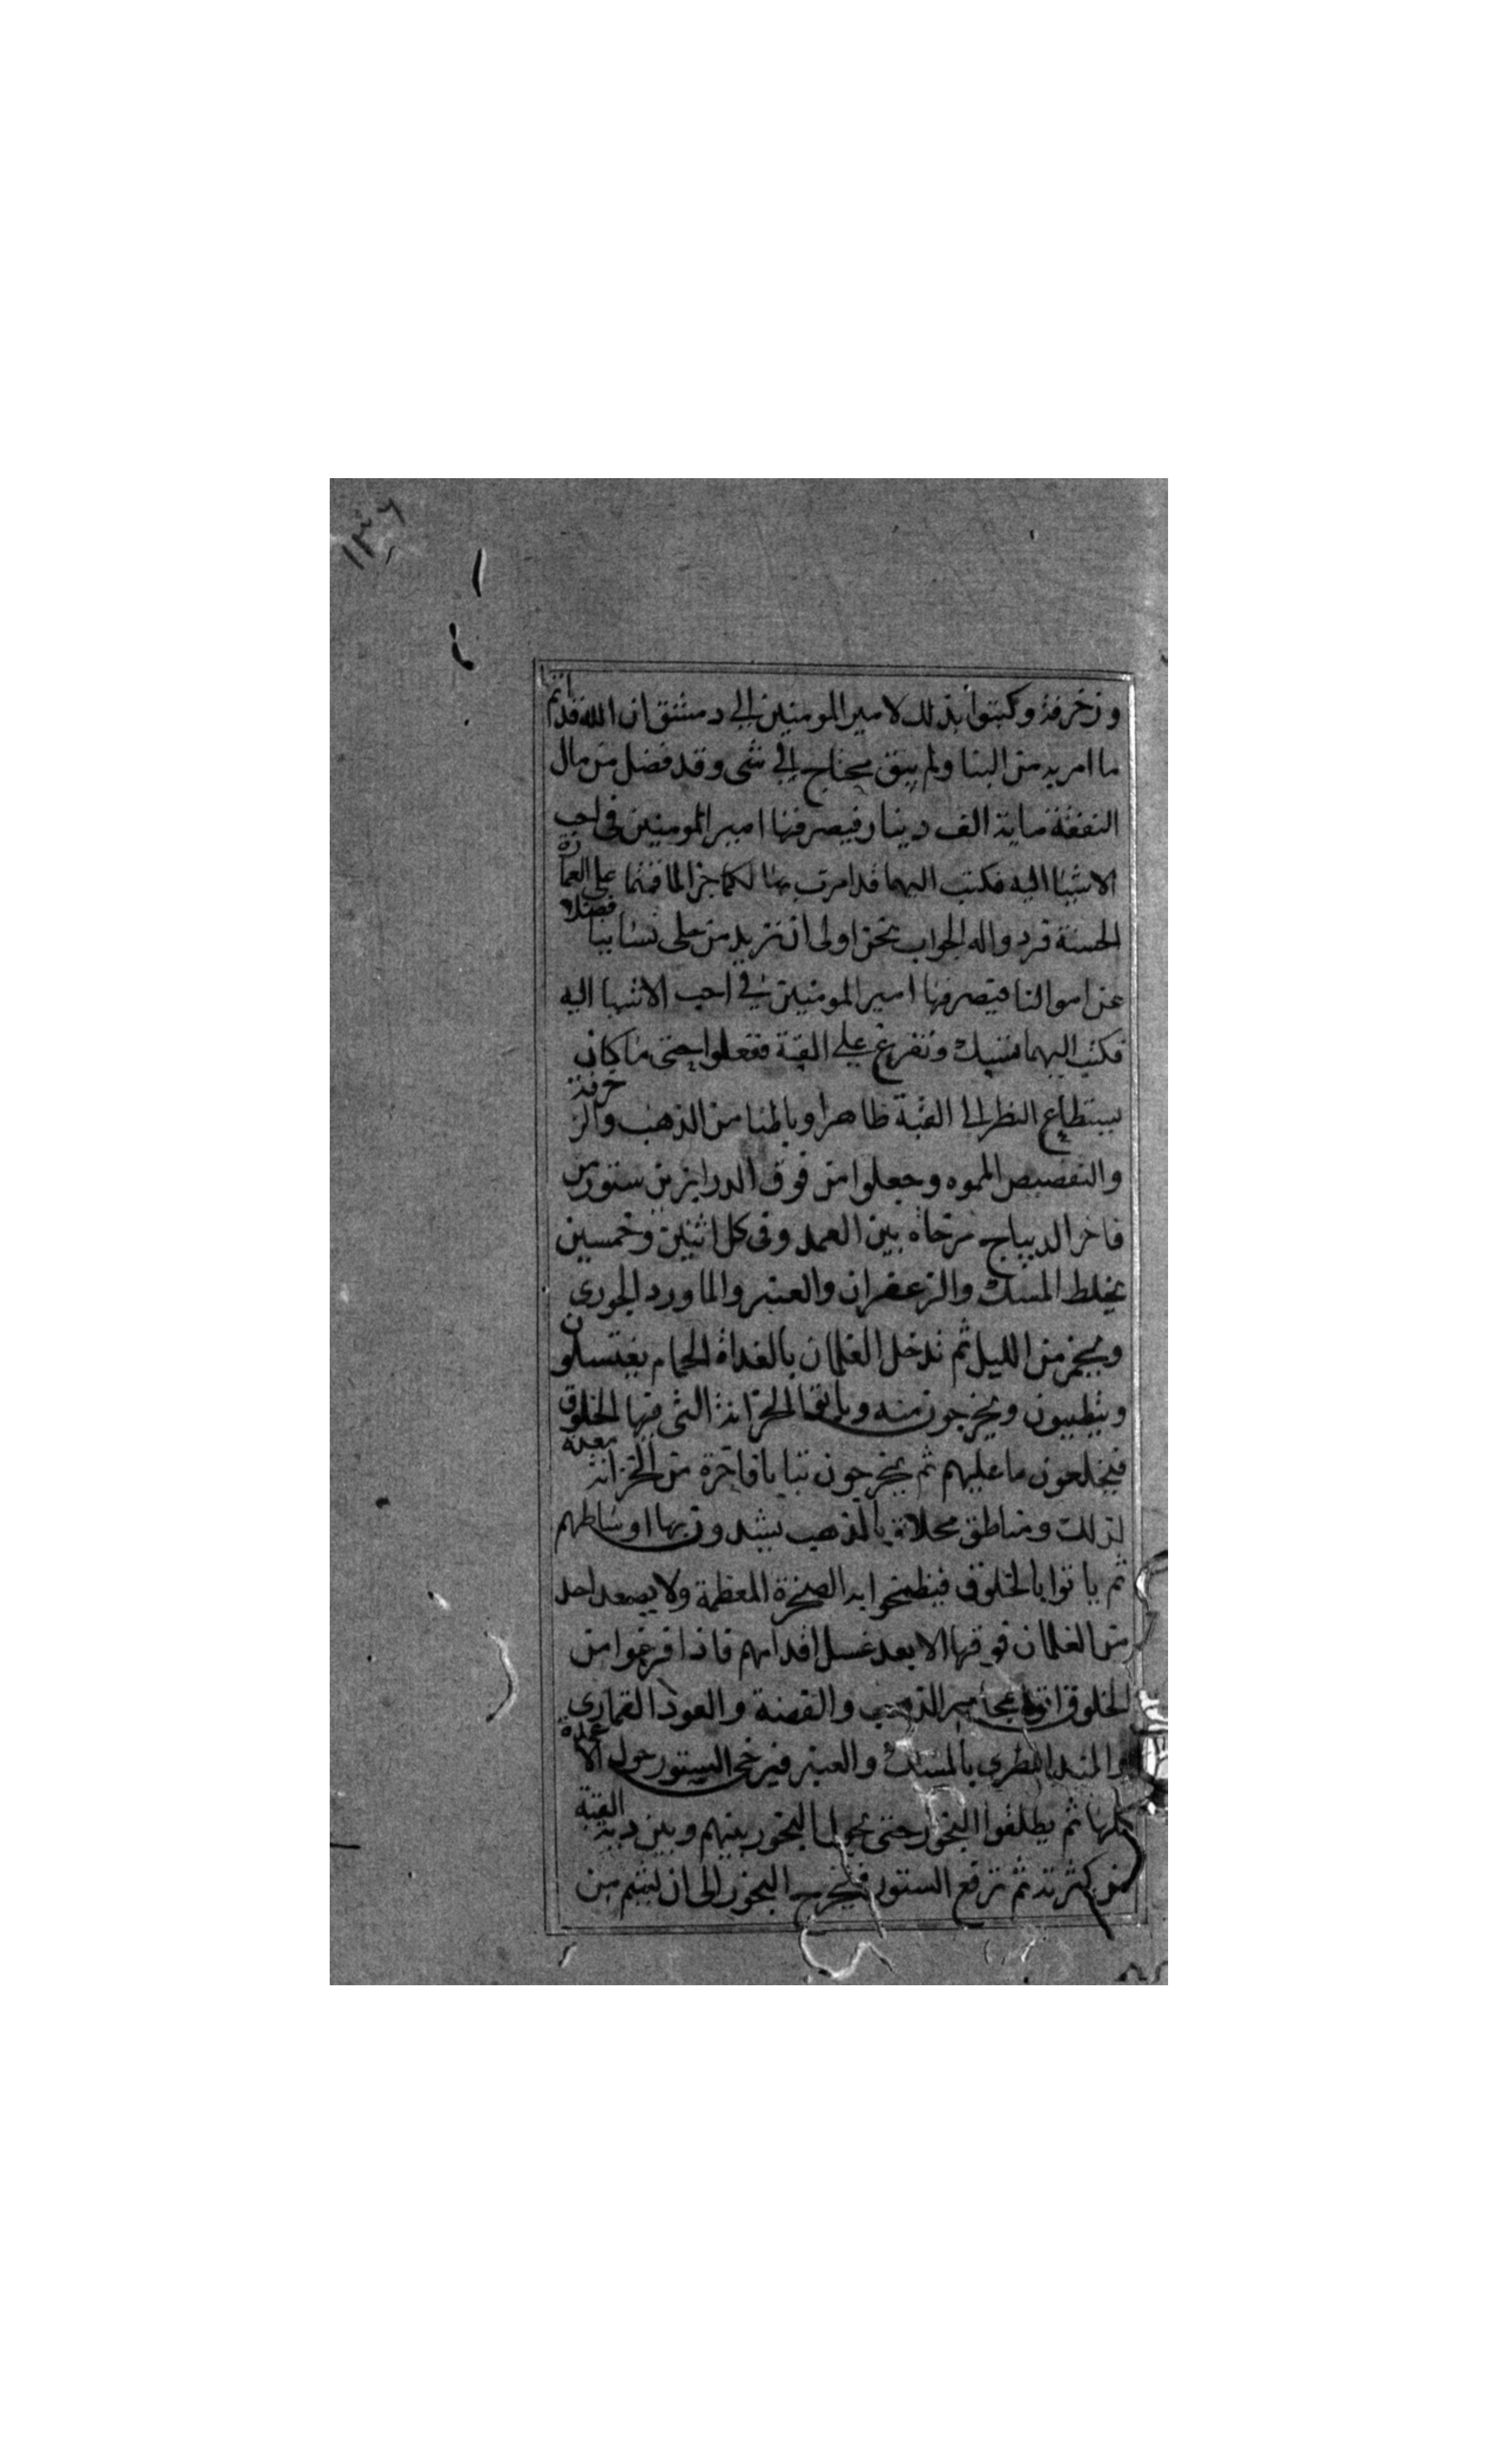 ١٣٦
وزخرفة وكتبوا بذلك لامير المومنين الي دمشق ان الله قد اتم
ما امر به من البنا ولم يبق يحتاج الي شي وقد فضل من مال
النفقة ماية الف دينار فيصرفها امير المومنين في احب
الاشيا اليه فكتب اليهما قد امرت بها لكما جزا لما قمتما علي العمارة
الحسنة فردوا له الجواب نحن اولى ان نزيد من حلى نسايبا فضلا
عن اموالنا فيصرفها امير المومنين في احب الاشيا اليه
فكتب اليهما تسبك وتفرغ علي القبة ففعلوا حتى ما كان
يستطاع النظر الى القبة ظاهرا وباطنا من الذهب والزخرفة
والتفصيص المموه وجعلوا من فوق الدرابزين ستور من
فاخر الديباج مرخاه بين العمد وفى كل اثنين وخمسين
يخلط المسك والزعفران والعنبر والماورد الجورى
ويخمر من الليل ثم تدخل الغلمان بالغداة الحمام يغتسلون
ويتطيبون ويخرجون منه وياتوا الخزانة التى فيها الخلوق
فيخلعون ما عليهم ثم يخرجون ثيابا فاخرة من الخزانة معدة
لذلك ومناطق محلاة بالذهب يشدون بها اوساطهم
ثم ياتوا بالخلوق فيطمخوا به الصخرة المعظمة ولا يصعد احد
من الغلمان فوقها الا بعد غسل اقدامهم فاذا فرغوا من
الخلوق اتوا بمجامير الذهب والفضة والعود القمارى
والمند المطرى بالمسك والعنبر فترخى الستور حول الاعمدة
كلها ثم يطلقوا البخور حتى يحول البخور بينهم وبين دبة القبة
من كثرته ثم ترفع الستور فيخرج البخور الى ان يشم من